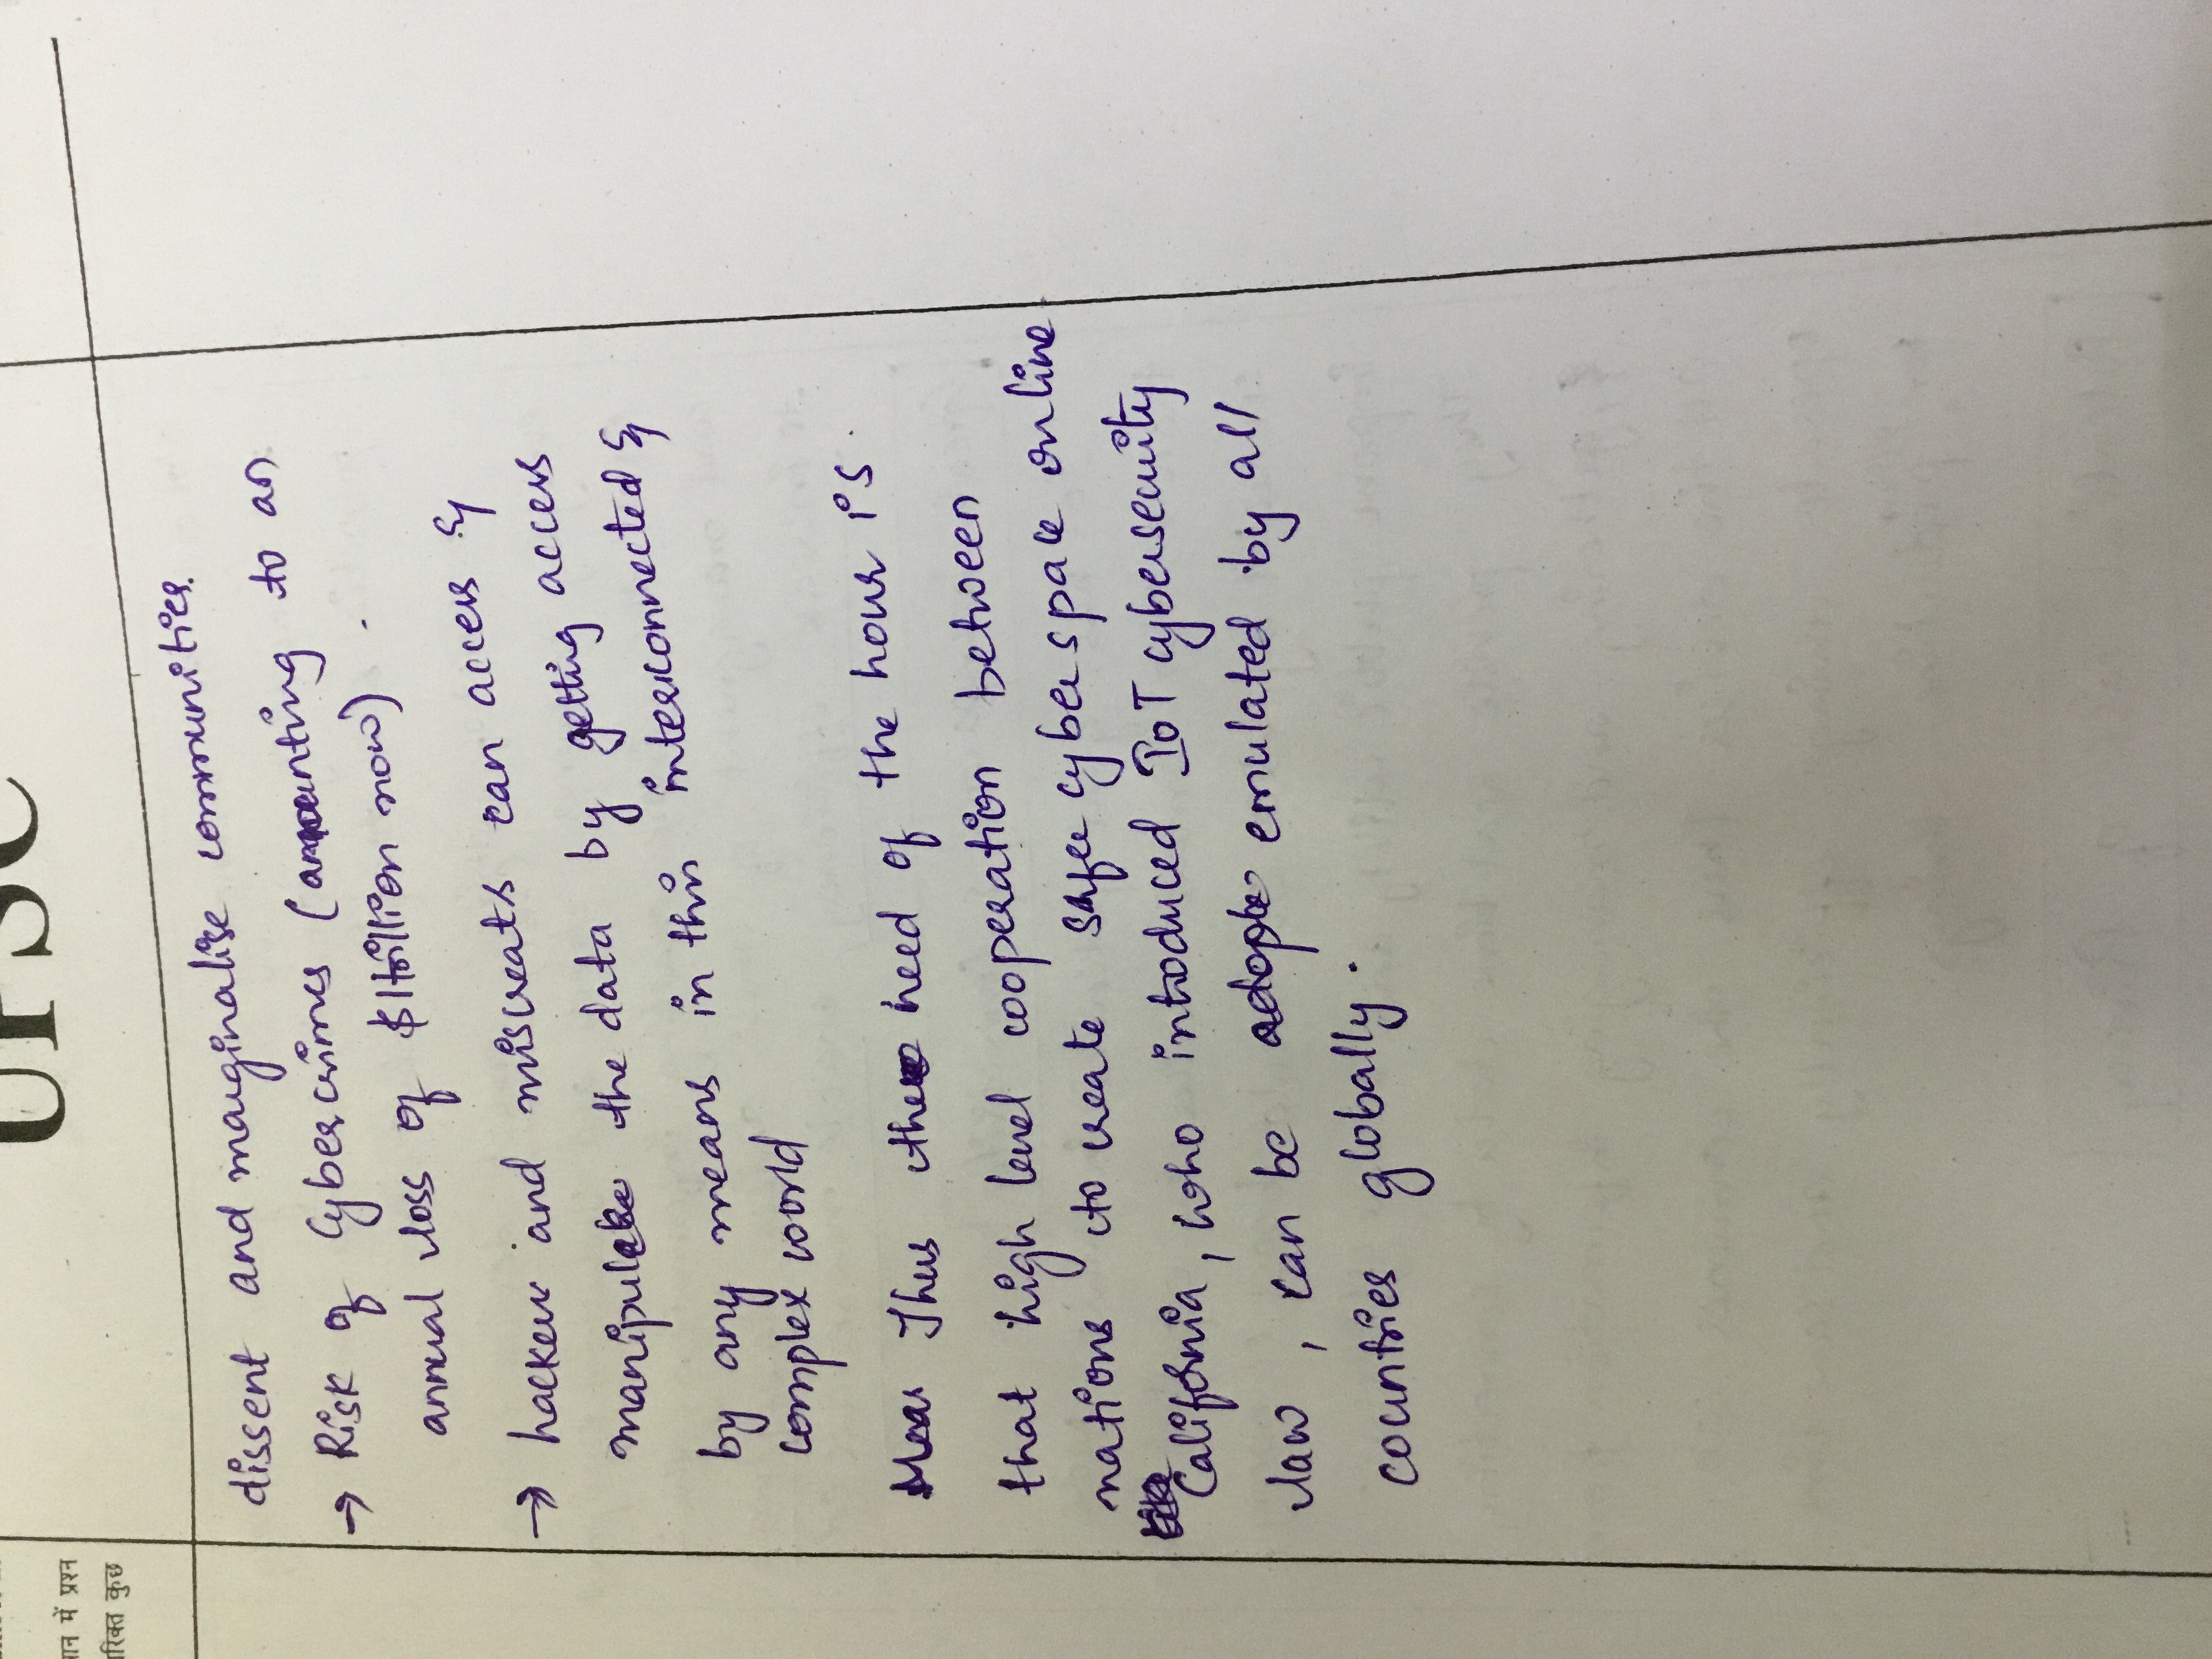 UPSC
ान में प्रश्न
रिक्त कुछ
dissent and marginalise communities.
→ Risk of Cybercrimes (amounting to an
annual loss of $1 trillion now).
→ hackers and miscreats can access &
manipulate the data by getting access
by any means in this interconnected &
complex world
Thus the need of the hour is
that high level cooperation between
nations to create safer cyberspace online
California, who introduced IoT cybersecurity
law, can be adopte emulated by all
countries globally.